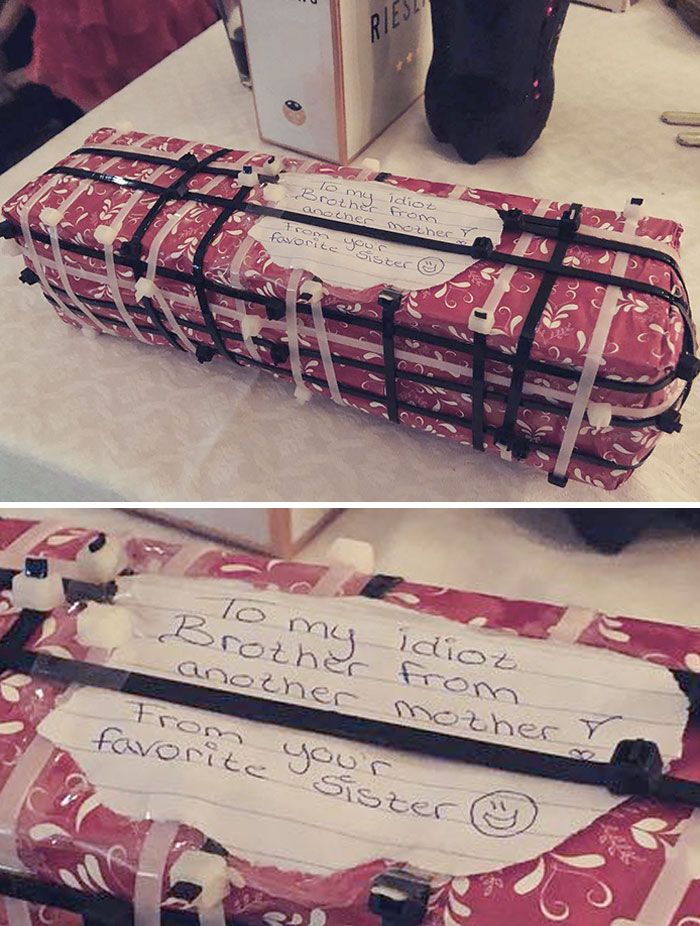 RIESL
To my idiot
Brother from
another mother
From you'r
favorite sister
To my idiot
Brother from
another mother
From you'r
favorite sister